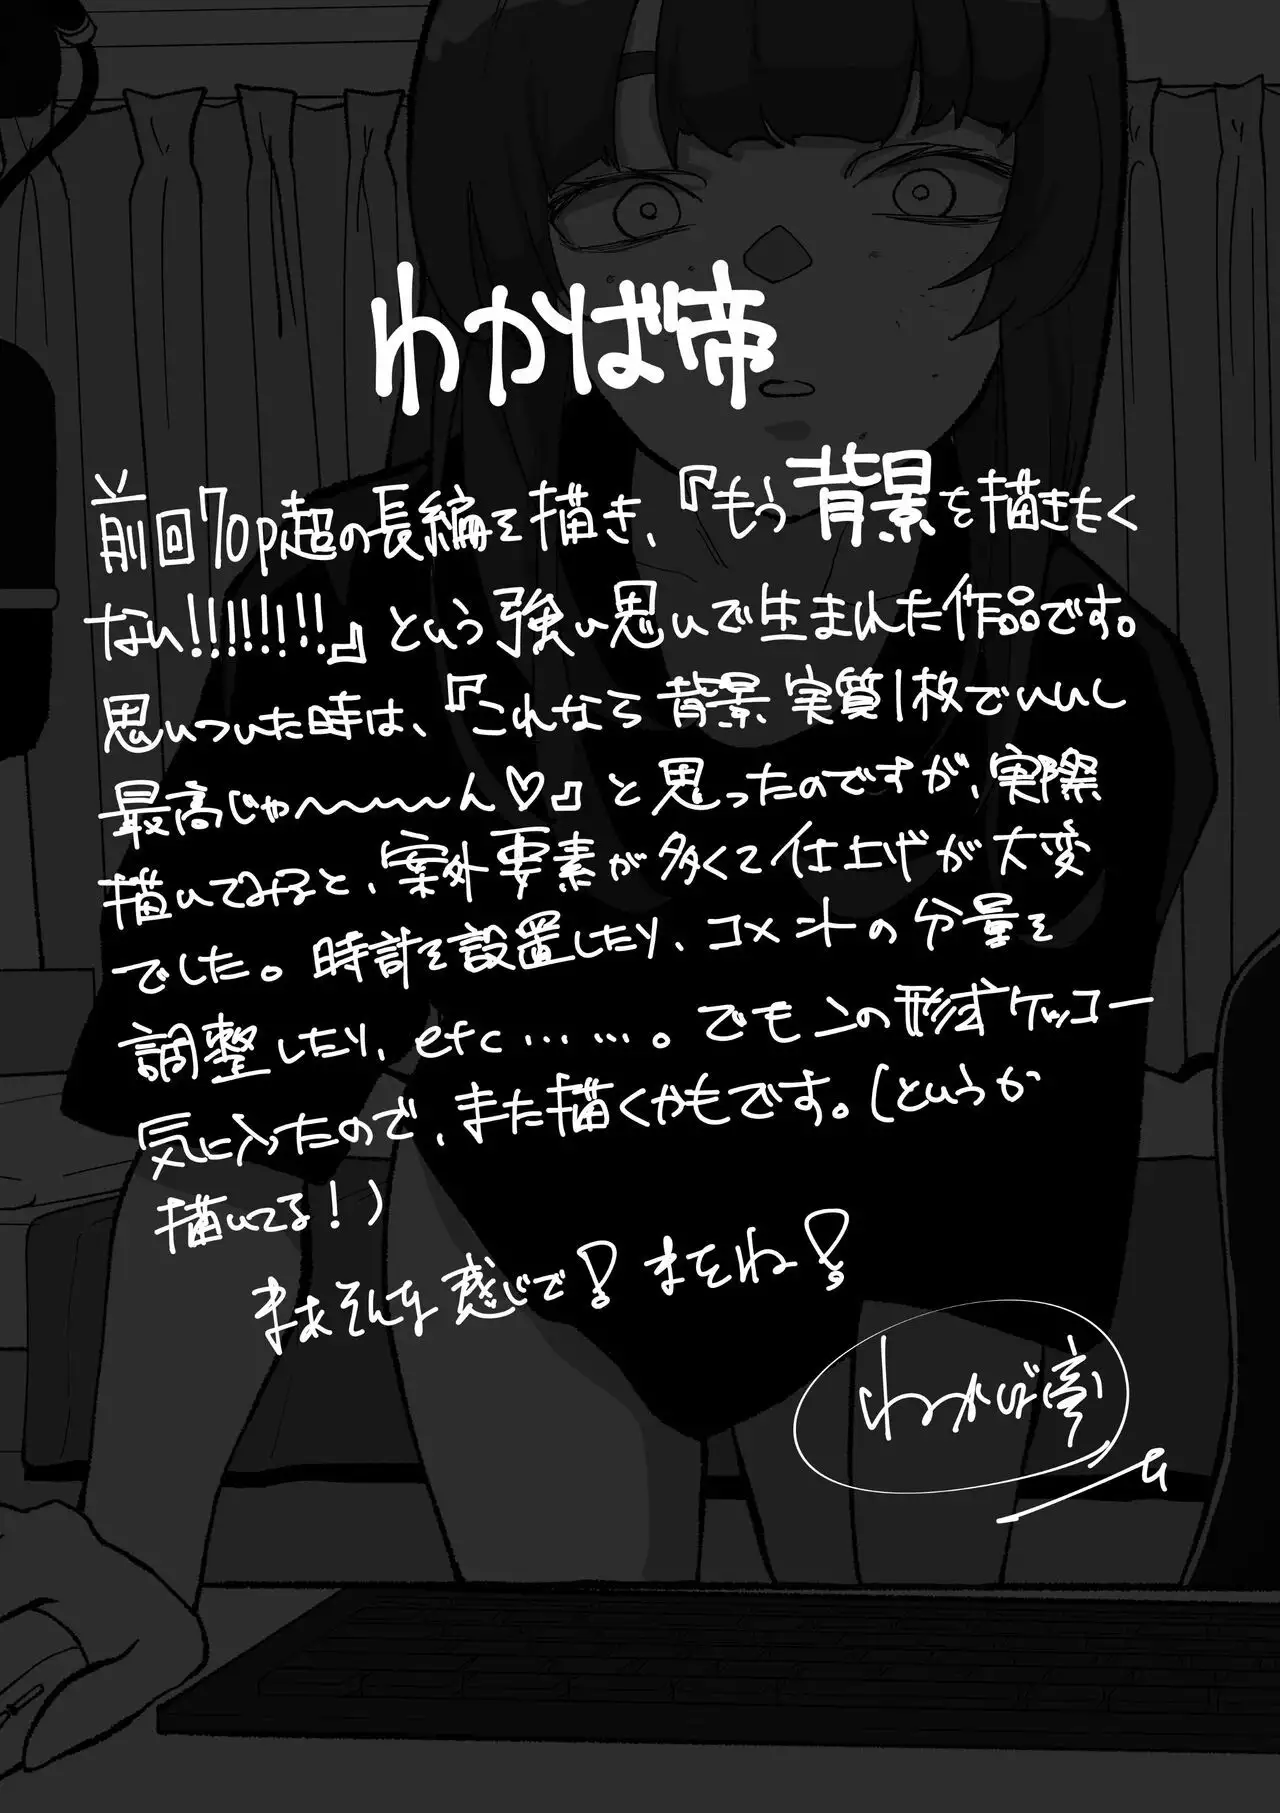 わかば帝
前回70p超の長編を描き、『もう背景を描きたく
ない!!!!!!!!』という強い思いで生まれた作品です。
思いついた時は、『これなら背景実質1枚でいいし
最高じゃ〜〜〜ん♡』と思ったのですが、実際
描いてみると、案外要素が多くて仕上げが大変
でした。時計を設置したり、コメントの分量を
調整したり、etc……。でもこの形式ケッコー
気に入ったので、また描くかもです。(というか
描いてる!)
まあそんな感じで!またね!
わかば帝